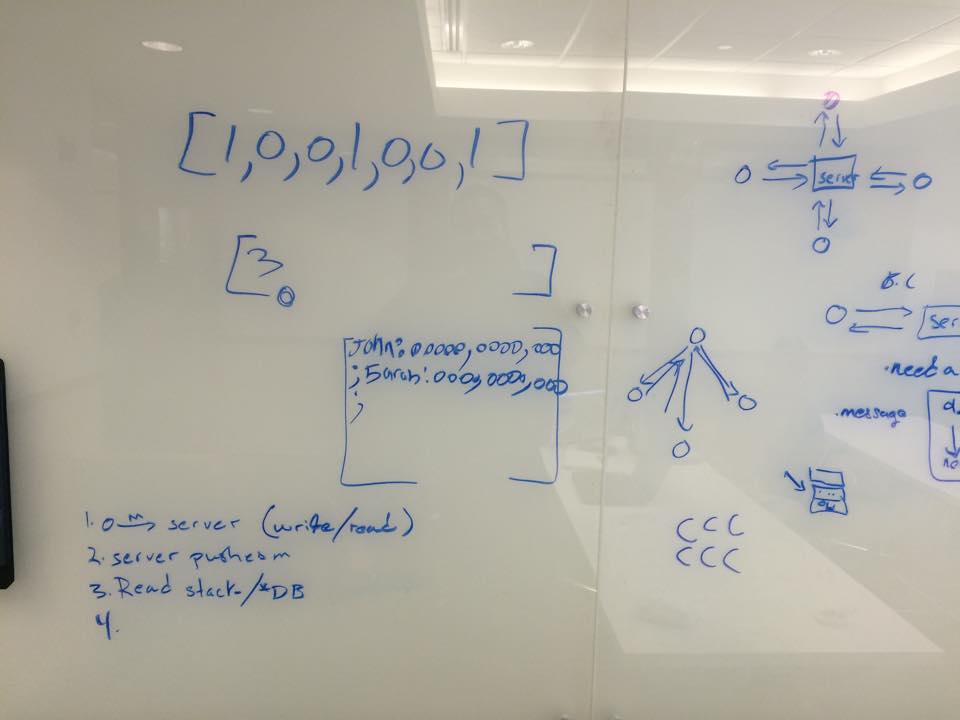 [1,0,0,1,0,0,1]
[3 0 ]
John:00000,0000,000
;Sarah:000,0000,000
;
1. o M→ server (write/read)
2. server pushes m
3. Read stack/*DB
4.
server
B.C
ser
.need a
.message
d
ne
C C C
C C C